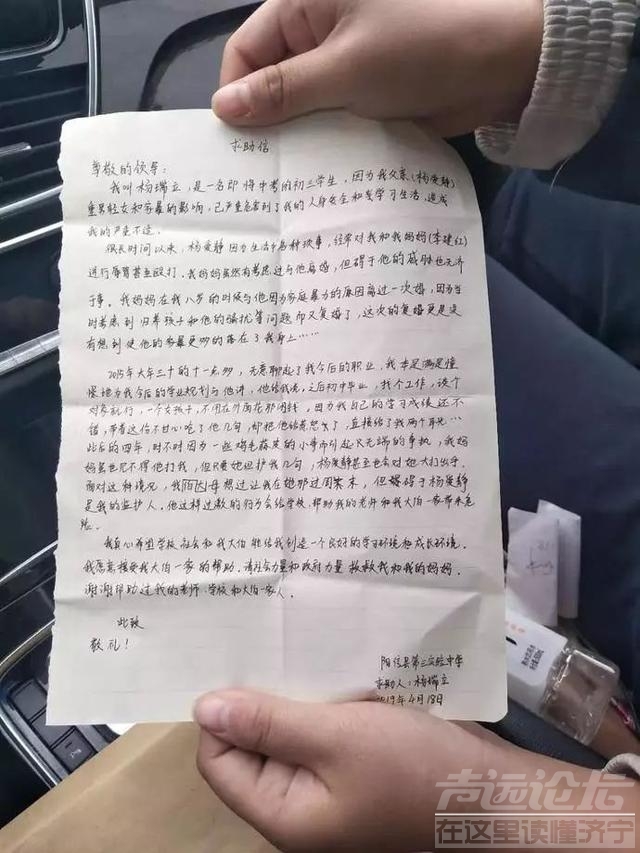 求助信
尊敬的领导：
我叫杨瑞立，是一名即将中考的初三学生，因为我父亲(杨爱静)
重男轻女和家暴的影响，已严重危害到了我的人身安全和学习生活，造成
我的严重不适。
很长时间以来，杨爱静因为生活中各种琐事，经常对我和我妈妈(李建红)
进行辱骂甚至殴打。我妈妈虽然有考虑过与他离婚，但碍于他的威胁也无济
于事。我妈妈在我八岁的时候与他因为家庭暴力的原因离过一次婚，因为当
时考虑到归养孩子和他的骚扰等问题而又复婚了，这次的复婚更是没
有想到使他的家暴更多的落在了我身上……
2015年大年三十的十一点多，无意聊起了我今后的职业，我本是满是憧
憬地为我今后的学业规划与他讲，他给我说，之后初中毕业，找个工作，谈个
对象就行，一个女孩子，不用在外面花那闲钱，因为我自己的学习成绩还不
错，带着这份不甘心吃了他几句，却把他给惹怒了，直接给了我两个耳光…
此后的四年，时不时因为一些鸡毛蒜皮的小事而引起无端的争执，我妈
妈虽也见不得他打我，但只要她袒护我几句，杨爱静甚至也会对她大打出手。
面对这种情况，我伯母想过让我在她那过周末，但碍于杨爱静
是我的监护人。他这样过激的行为会给学校，帮助我的老师和我大伯一家带来危
险。
我真心希望学校，社会和我大伯能给我创造一个良好的学习环境和成长环境。
我愿意接受我大伯一家的帮助。请社会力量和政府力量救救我和我的妈妈。
谢谢帮助过我的老师、学校和大伯一家人。
此致
敬礼！
阳信县第三实验中学
求助人：杨瑞立
2019年4月18日
声远论坛
在这里读懂济宁